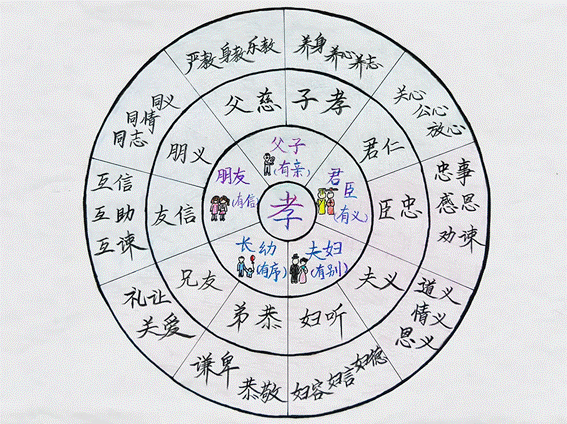 孝
父子
(有亲)
君臣
(有义)
夫妇
(有别)
长幼
(有序)
朋友
(有信)
父慈
子孝
君仁
臣忠
夫义
妇听
弟恭
兄友
友信
朋义
严教 身教 乐教
养身 养心 养志
关心
公心
放心
忠事
感恩
劝谏
道义
情义
恩义
妇容 妇言 妇德
谦卑
恭敬
礼让
关爱
互信
互助
互谏
同义
同情
同志